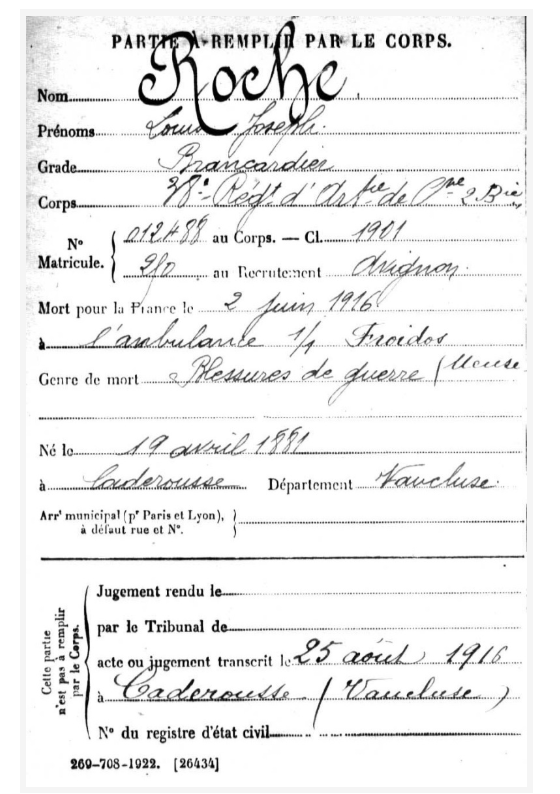 PARTIE À REMPLIR PAR LE CORPS.
Nom Roche
Prénoms Louis Joseph.
Grade Brancardier
Corps 38e Régt d'Artie de Cne 2 Bie
No Matricule. { 012488 au Corps. — Cl. 1901
250 au Recrutement Avignon.
Mort pour la France le 2 juin 1916
à l'ambulance 1/1 Froidos
Genre de mort Blessures de guerre (Meuse
Né le 19 avril 1881
à Caderousse Département Vaucluse.
Arrt municipal (pr Paris et Lyon), }
à défaut rue et No. }
Cette partie n'est pas à remplir par le Corps. {
Jugement rendu le
par le Tribunal de
acte ou jugement transcrit le 25 août 1916
à Caderousse (Vaucluse)
No du registre d'état civil
269-708-1922. [26434]